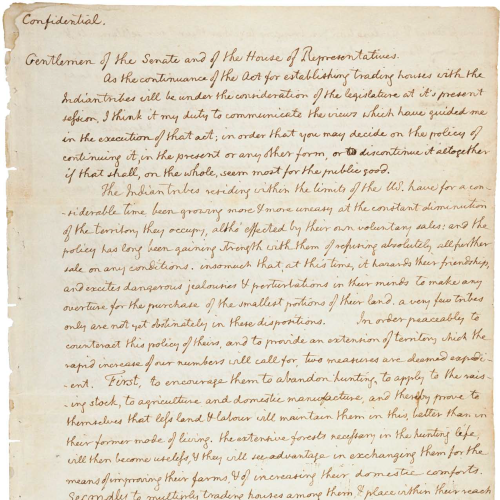 Confidential.
Gentlemen of the Senate and of the House of Representatives.
As the continuance of the Act for establishing trading houses with the
Indian tribes will be under the consideration of the legislature at it's present
session, I think it my duty to communicate the views which have guided me
in the execution of that act; in order that you may decide on the policy of
continuing it, in the present or any other form, or to discontinue it altogether
if that shall, on the whole, seem most for the public good.
The Indian tribes residing within the limits of the US. have for a con-
-siderable time been growing more & more uneasy at the constant diminution
of the territory they occupy, altho' effected by their own voluntary sales: and the
policy has long been gaining strength with them of refusing absolutely all further
sale on any conditions. insomuch that, at this time, it hazards their friendship,
and excites dangerous jealousies & perturbations in their minds to make any
overture for the purchase of the smallest portions of their land. a very few tribes
only are not yet obstinately in these dispositions. In order peaceably to
counteract this policy of theirs, and to provide an extension of territory which the
rapid increase of our numbers will call for, two measures are deemed expedi-
-ent. First, to encourage them to abandon hunting, to apply to the rais-
-ing stock, to agriculture and domestic manufacture, and thereby prove to
themselves that less land & labour will maintain them in this, better than in
their former mode of living. the extensive forests necessary in the hunting life,
will then become useless, & they will see advantage in exchanging them for the
means of improving their farms, & of increasing their domestic comforts.
Secondly to multiply trading houses among them & place within their reach